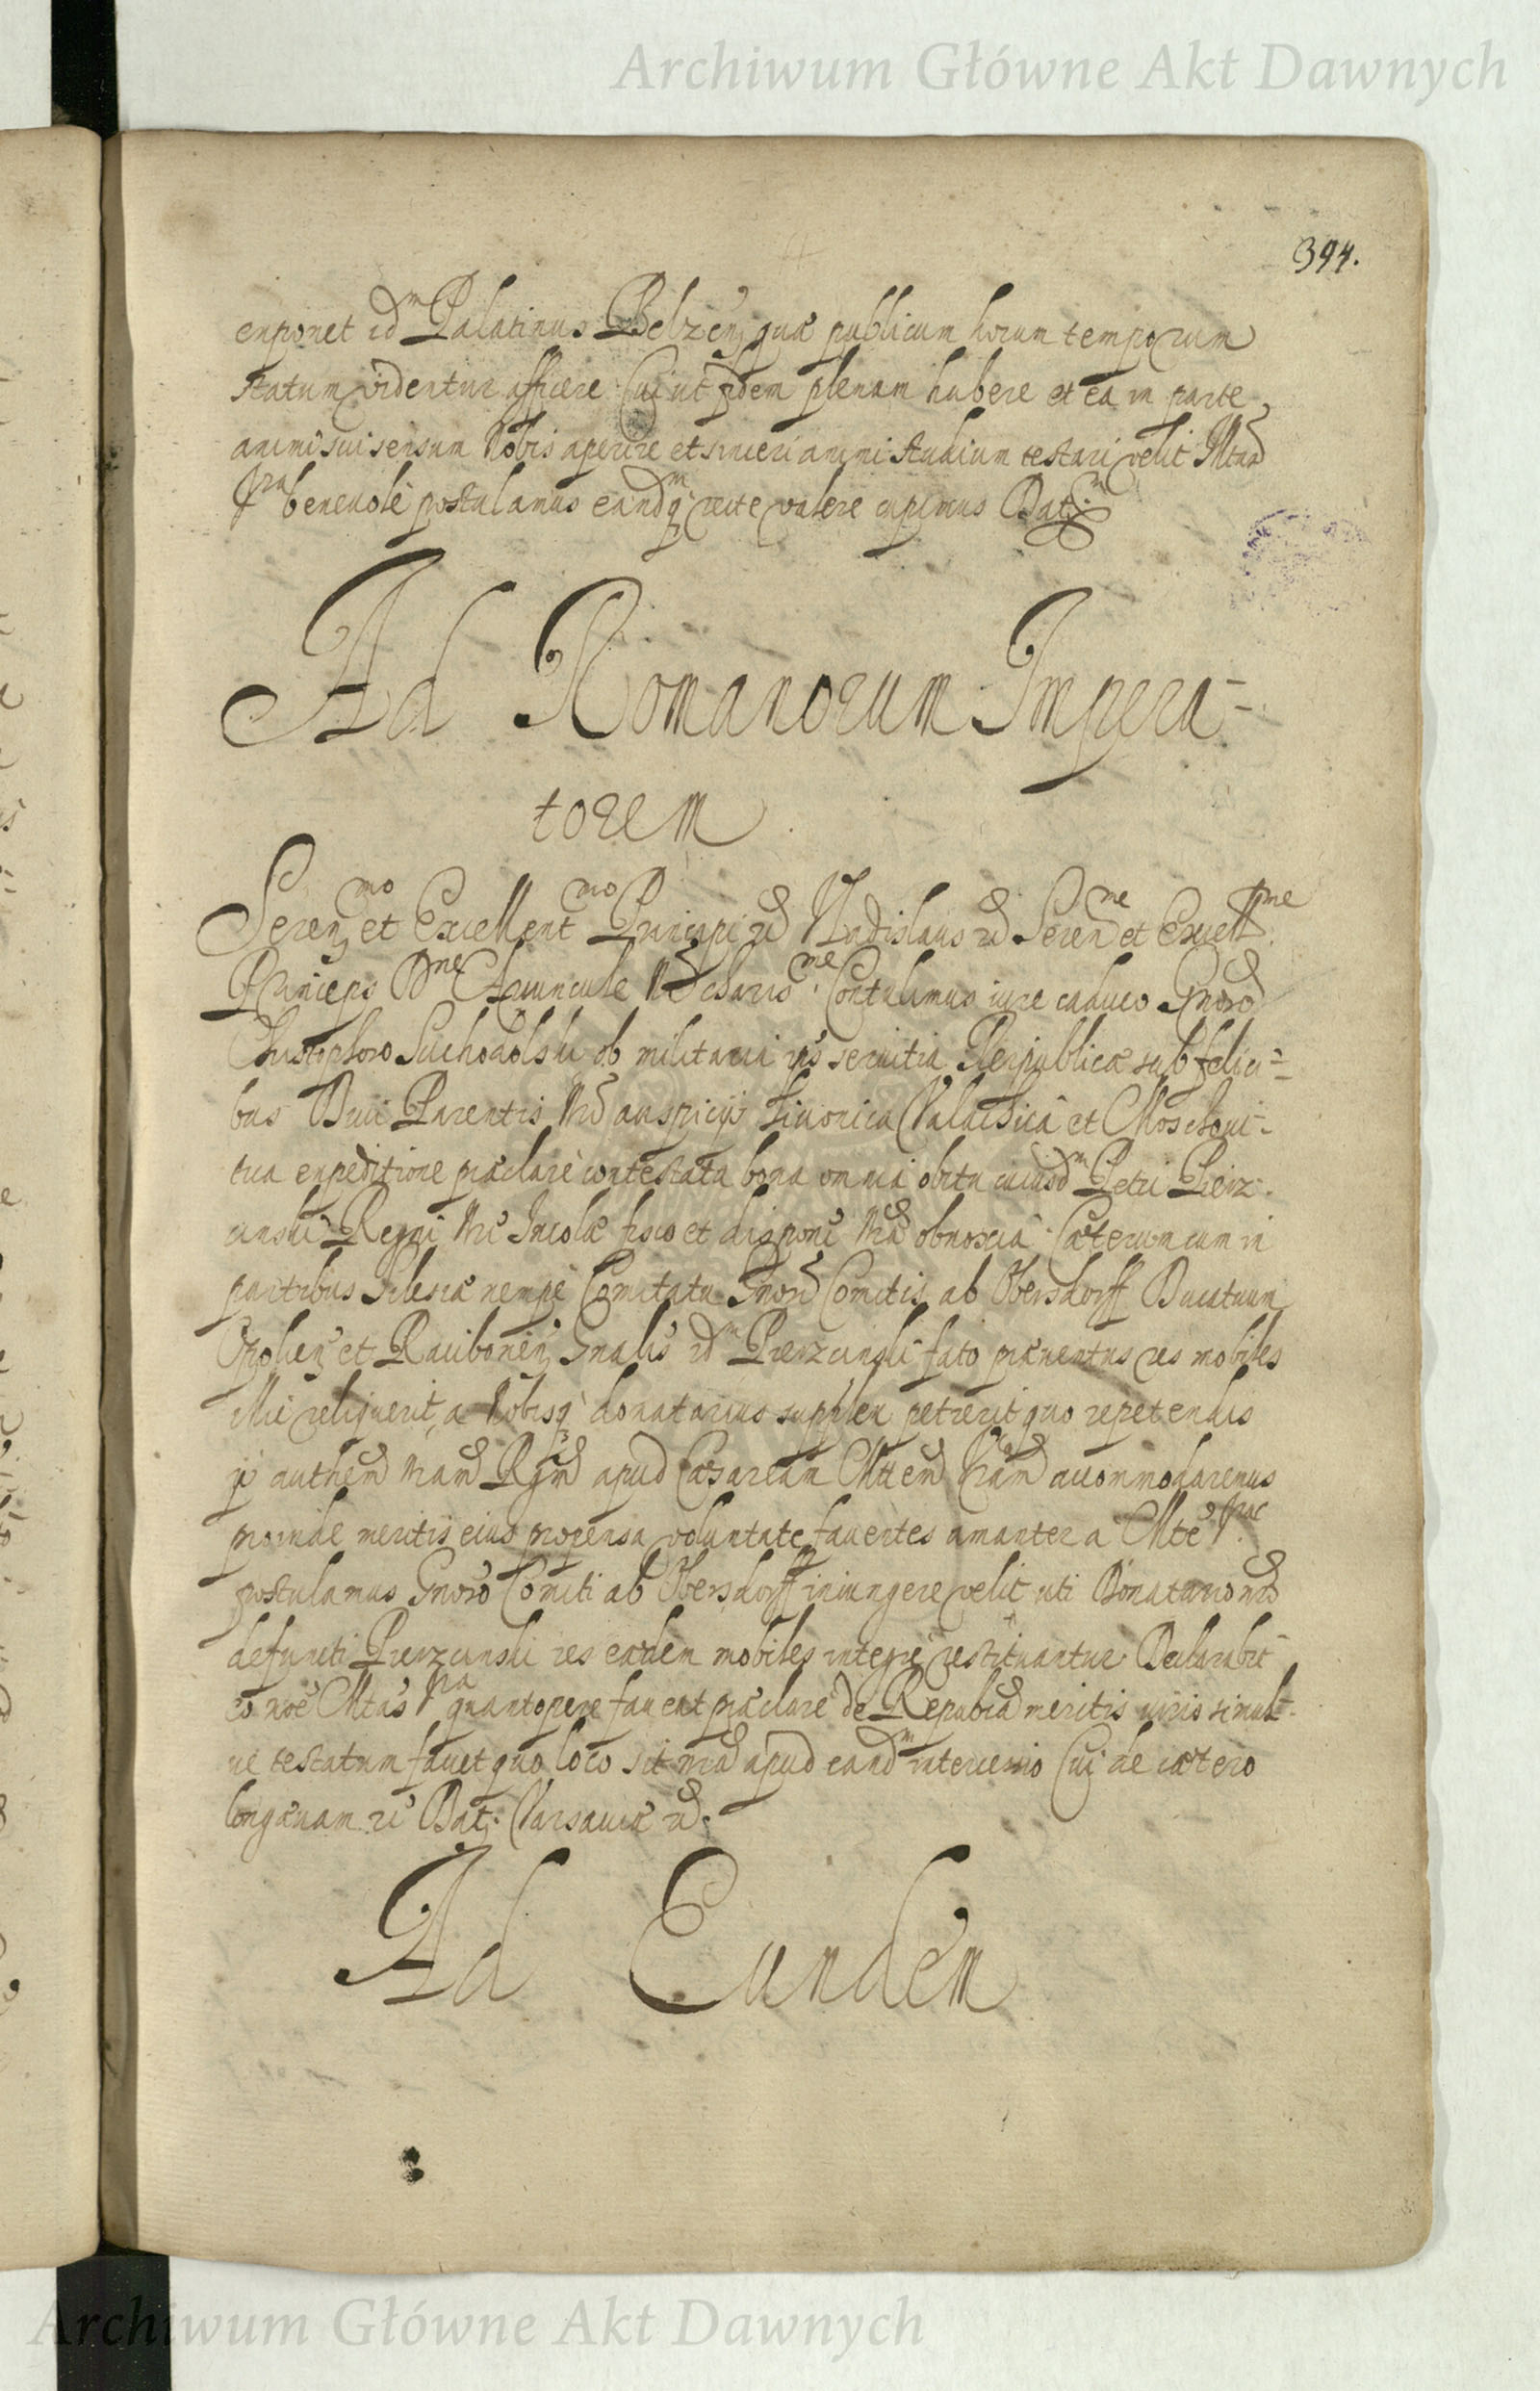 Archiwum Główne Akt Dawnych
394.
exponet id^m Palatinus Belzen, quæ publicum horum temporum
statum videntur afficere. Cui ut fidem plenam habere et ea in parte
animi sui sensum Nobis aperire et sinceri animi studium testari velit Illtas
Vra benevolè postulamus eand^mq recte valere cupimus Dat:
Ad Romanorum Impera-
torem
Seren^mo et Excellent^mo Principi Vladislaus Seren^ne et Excell^me
Princeps D^ne Avuncule Nr charis^me. Contulimus iure caduco Gnoso
Christophoro Suchodolski ob militaria ips servitia Reipublicæ sub felici=
bus Divi Parentis Nri auspicijs Livonica Valachica et Moschovi-
tica expeditione præclarè contestata bona omnia obitu cuiusd^m Petri Pierz-
cinski Regni Nri Incolæ fisco et disponi Nræ obnoxia. Cæterum cum in
partibus Silesiæ nempè Comitatu Gnosi Comitis ab Obersdorff Ducatuum
Opolien et Raciborien, Gnalis id^m Pierzcinski fato præventus res mobiles
illic reliquerit, a Nobisq donatarius supplex petierit quo repetendis
ijs authem Nram Rgm apud Cæsaream Mttem Vram accommodaremus
proinde meritis eius propensa voluntate faventes amanter a Mte Vrae
postulamus Gnoso Comiti ab Obersdorff iniungere velit uti Donatario nro
defuncti Pierzcinski res eædem mobiles integrè restituantur. Declarabit
eo noe Mtas Vra quantopere faveat præclarè de Repubca meritis viris simul-
ue testatum faciet quo loco sit nra apud eand^m intercessio Cui de cætero
longævam Dat: Varsaviæ
Ad Eundem
Archiwum Główne Akt Dawnych